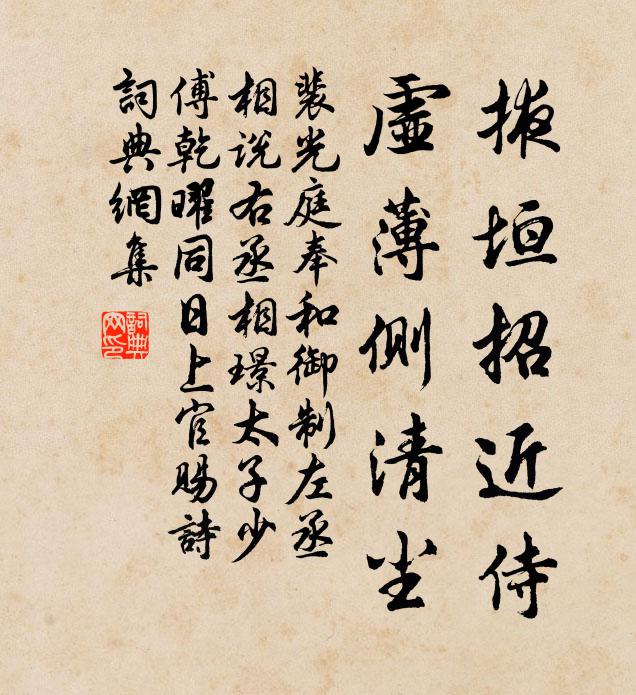 掖垣招近侍
虛薄側清尘
裴光庭奉和御制左丞
相说右丞相璟太子少
傅乾曜同日上官賜詩
詞典網集
詞典
网印